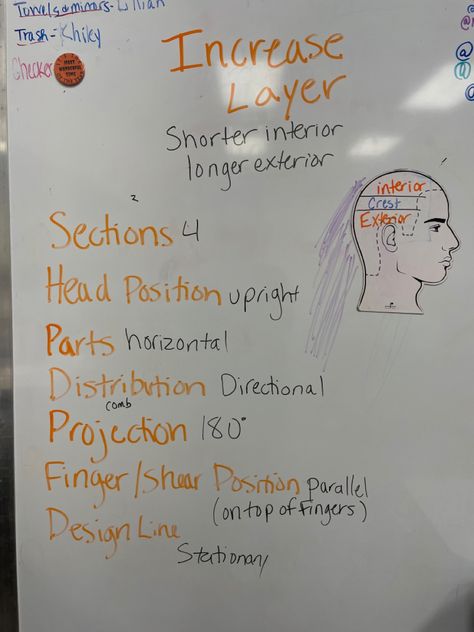 Towels & mirrors - Lillian
Trash - Khiley
Checker
MOST
WONDERFUL
TIME
Increase
Layer
Shorter interior
longer exterior
interior
Crest
Exterior
2
Sections 4
Head Position upright
Parts horizontal
Distribution Directional
comb
Projection 180°
Finger/Shear Position parallel
(on top of Fingers)
Design Line
Stationary